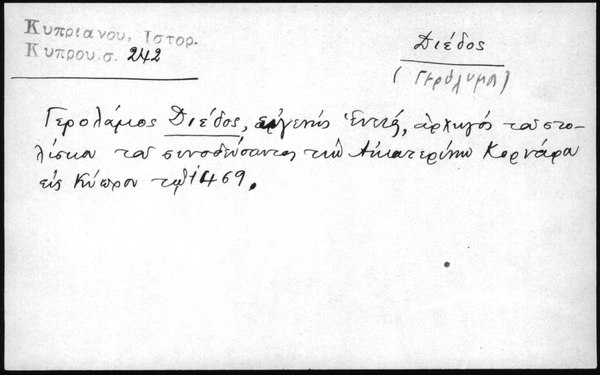 Κυπριανου, Ιστορ.
Κυπρου.σ. 242
Διέδος
(Γερόλυμο)
Γερολάμος Διέδος, εὐγενὴς Ἑνετός, ἀρχηγός του στο-
λίσκου του συνοδεύσαντος τὴν Αἰκατερίνην Κορνάρο
εἰς Κύπρον τῷ 1469.